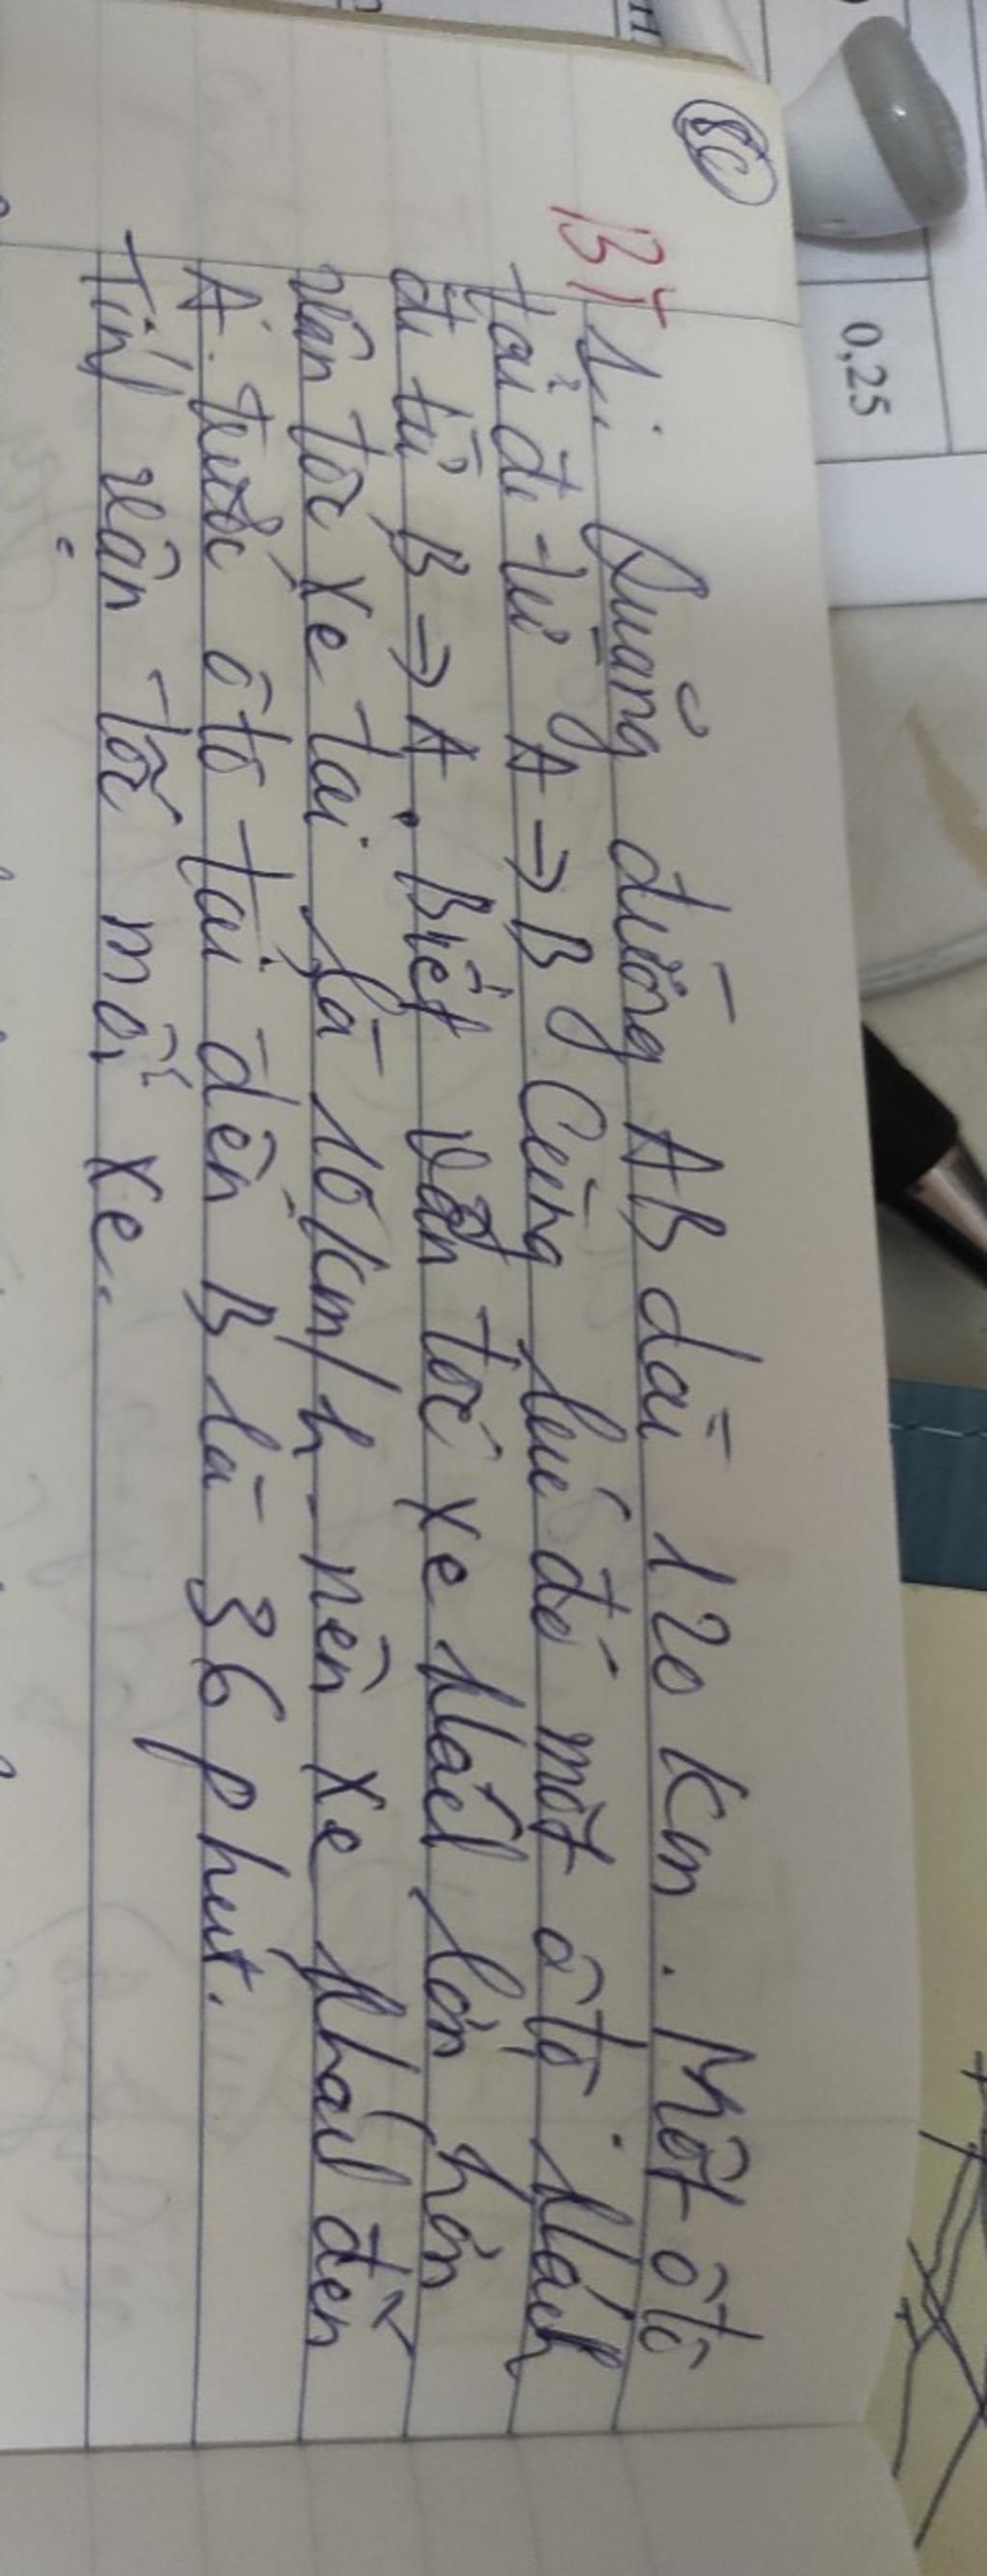 8C
0,25
BT
1. Quãng đường AB dài 120 km. Một ôtô
tải đi từ A → B Cùng lúc đó một ôtô khách
đi từ B → A. Biết vận tốc xe khách lớn hơn
vận tốc xe tải là 10 km/h nên xe khách đến
A trước ôtô tải đến B là 36 phút.
Tính vận tốc mỗi xe.